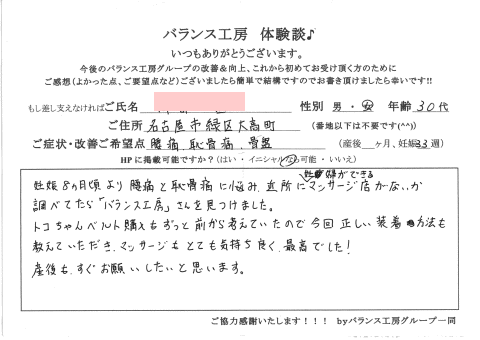 バランス工房 体験談♪
いつもありがとうございます。
今後のバランス工房グループの改善&向上、これから初めてお受け頂く方のために
ご感想(よかった点、ご要望点など)ございましたら簡単で結構ですのでお書き頂けましたら幸いです!!
もし差し支えなければご氏名 性別 男・女 年齢 30代
ご住所 名古屋市緑区大高町 (番地以下は不要です(^^))
ご症状・改善ご希望点 腰痛、恥骨痛、骨盤 (産後 ヶ月、妊娠33週)
HPに掲載可能ですか?(はい・イニシャルなら可能・いいえ)
妊婦ができる
妊娠8カ月頃より腰痛と恥骨痛に悩み、近所にマッサージ店がないか
調べてたら「バランス工房」さんを見つけました。
トコちゃんベルト購入もずっと前から考えていたので今回正しい装着方法も
教えていただき、マッサージもとても気持ち良く、最高でした!
産後も、すぐお願いしたいと思います。
ご協力感謝いたします!!! byバランス工房グループ一同